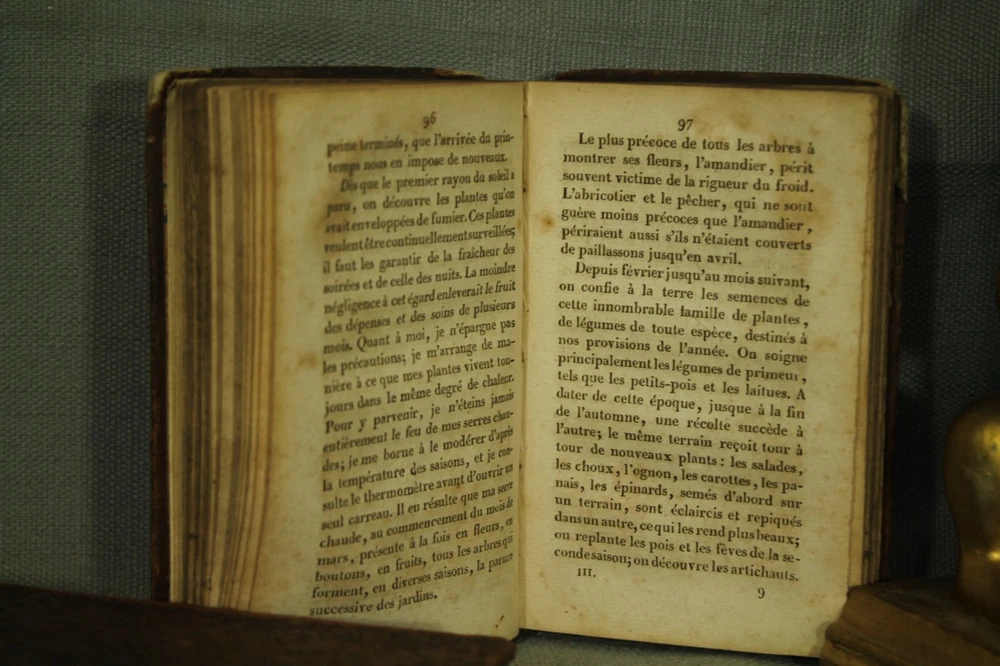 96
peine terminés, que l'arrivée du prin-
temps nous en impose de nouveaux.
Dès que le premier rayon du soleil a
paru, on découvre les plantes qu'on
avait enveloppées de fumier. Ces plantes
veulent être continuellement surveillées;
il faut les garantir de la fraîcheur des
soirées et de celle des nuits. La moindre
négligence à cet égard enleverait le fruit
des dépenses et des soins de plusieurs
mois. Quant à moi, je n'épargne pas
les précautions; je m'arrange de ma-
nière à ce que mes plantes vivent tou-
jours dans le même degré de chaleur.
Pour y parvenir, je n'éteins jamais
entièrement le feu de mes serres chau-
des; je me borne à le modérer d'après
la température des saisons, et je con-
sulte le thermomètre avant d'ouvrir un
seul carreau. Il en résulte que ma serre
chaude, au commencement du mois de
mars, présente à la fois en fleurs, en
boutons, en fruits, tous les arbres qui
forment, en diverses saisons, la parure
successive des jardins.
97
Le plus précoce de tous les arbres à
montrer ses fleurs, l'amandier, périt
souvent victime de la rigueur du froid.
L'abricotier et le pêcher, qui ne sont
guère moins précoces que l'amandier,
périraient aussi s'ils n'étaient couverts
de paillassons jusqu'en avril.
Depuis février jusqu'au mois suivant,
on confie à la terre les semences de
cette innombrable famille de plantes,
de légumes de toute espèce, destinés à
nos provisions de l'année. On soigne
principalement les légumes de primeur,
tels que les petits-pois et les laitues. A
dater de cette époque, jusque à la fin
de l'automne, une récolte succède à
l'autre; le même terrain reçoit tour à
tour de nouveaux plants: les salades,
les choux, l'ognon, les carottes, les pa-
nais, les épinards, semés d'abord sur
un terrain, sont éclaircis et repiqués
dans un autre, ce qui les rend plus beaux;
on replante les pois et les fèves de la se-
conde saison; on découvre les artichauts.
III.
9